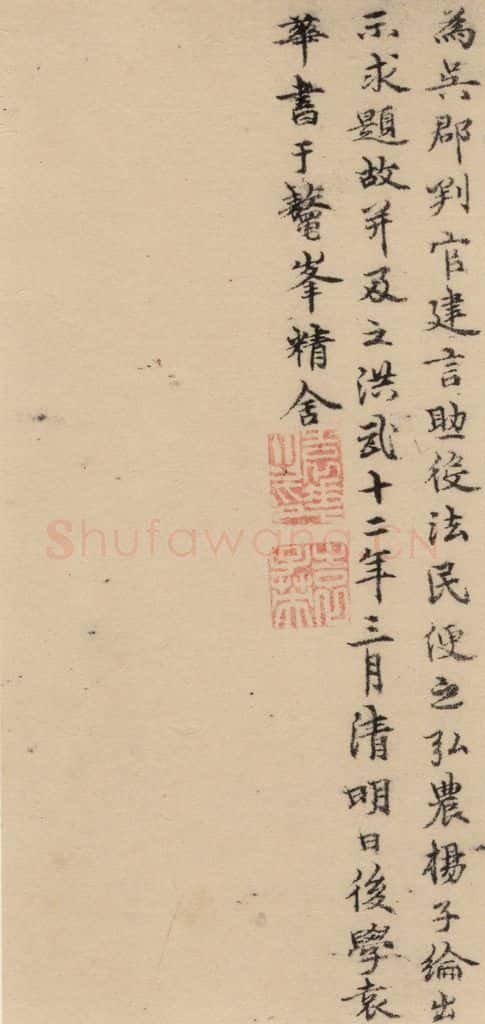 為吳郡判官建言助役法民便之弘農楊子綸出
示求題故并及之洪武十二年三月清明日後學袁
華書于鼇峯精舍
Shufawang.CN